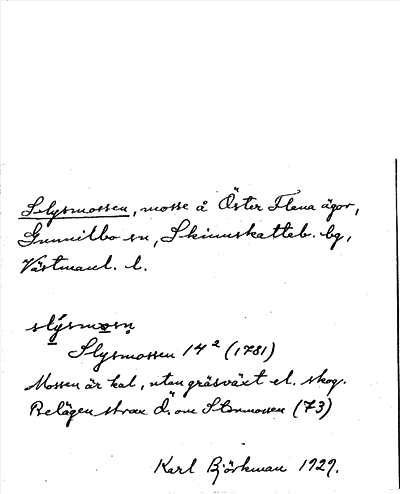 Slysmossen, mosse å Öster Flena ägor,
Gunnilbo sn, Skinnskatteb. bg,
Västmanl. l.
slýsmosn̥
Slysmossen 14² (1781)
Mossen är kal, utan gräsväxt el. skog.
Belägen strax ö. om Stormossen (73)
Karl Björkman 1929.